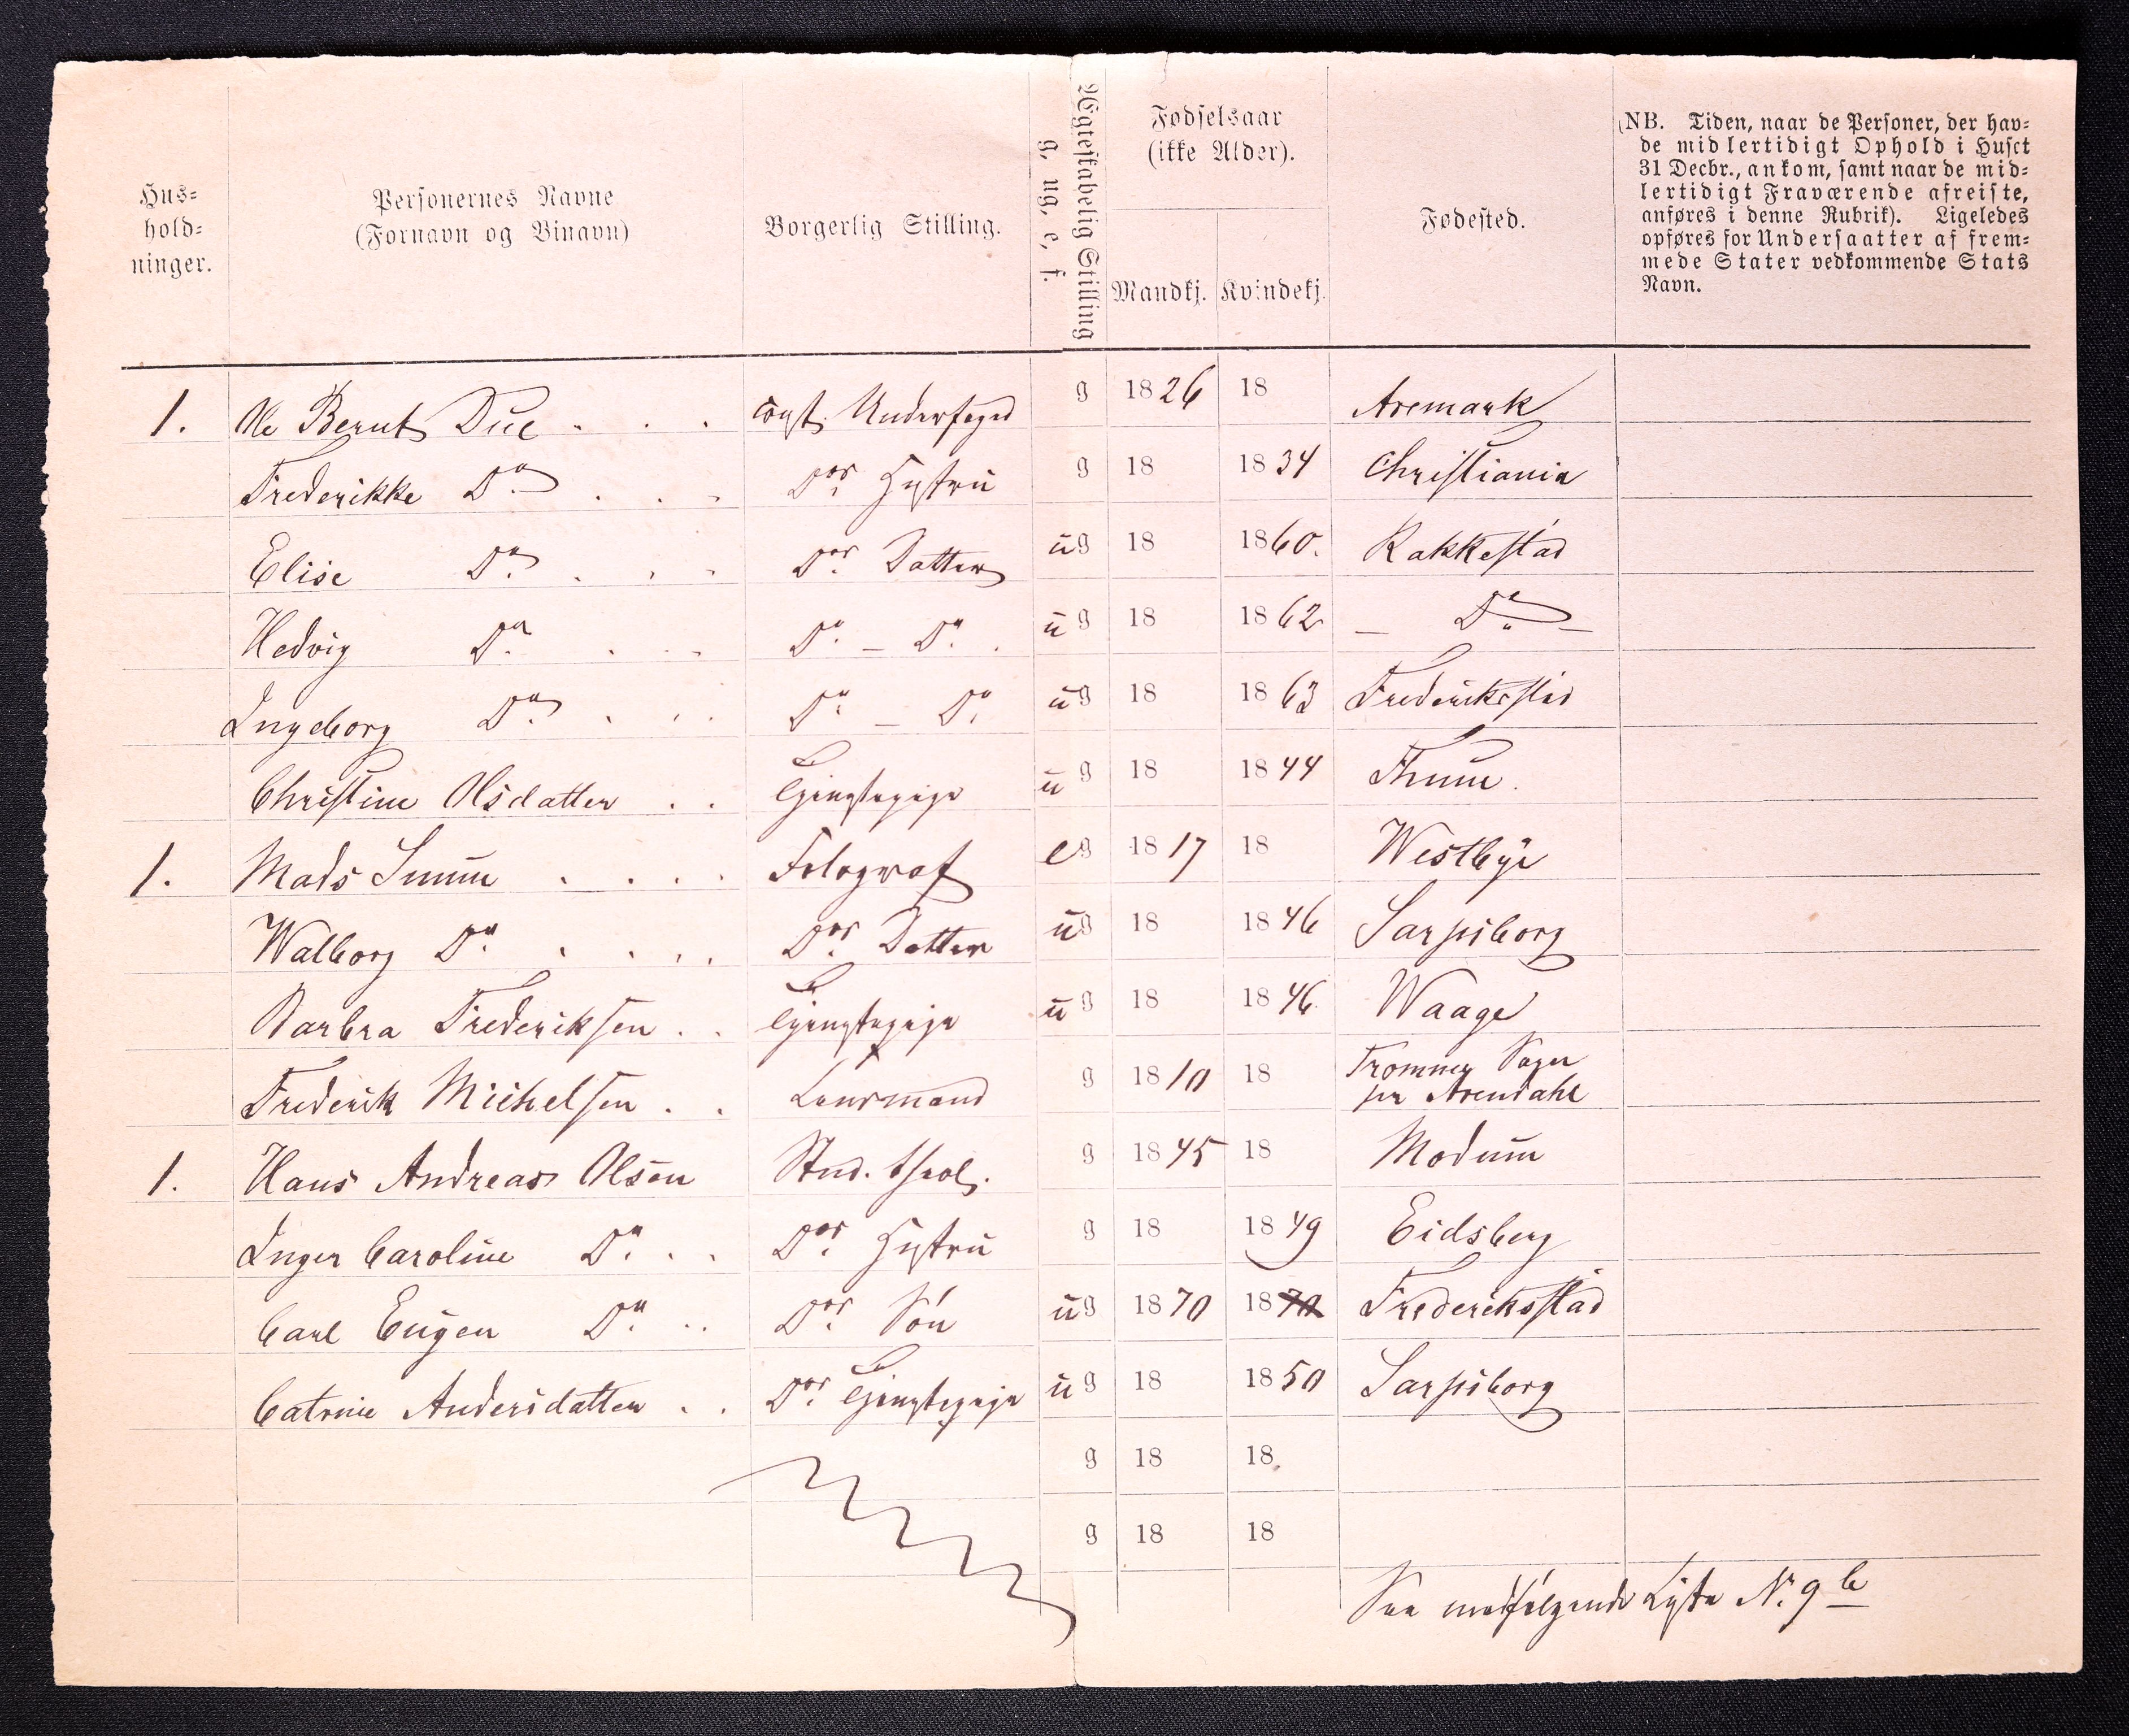 Hus-
hold-
ninger.
Personernes Navne
(Fornavn og Binavn)
Borgerlig Stilling.
Ægteskabelig Stilling
g, ug, e, f.
Fødselsaar
(ikke Alder).
Mandkj. Kvindekj.
Fødested.
(NB. Tiden, naar de Personer, der hav-
de midlertidigt Ophold i Huset
31 Decbr., ankom, samt naar de mid-
lertidigt Fraværende afreiste,
anføres i denne Rubrik). Ligeledes
opføres for Undersaatter af frem-
mede Stater vedkommende Stats
Navn.
1. Ole Bernt Due . . . const. Underfoged g 1826 18 Aremark
Frederikke Do . . . Dos Hustru g 18 1834 Christiania
Elise Do . . . Dos Datter ug 18 1860. Rakkestad
Hedvig Do . . . Do - Do . ug 18 1862 - Do -
Ingeborg Do . . . Do - Do ug 18 1863 Frederiksstad
Christine Olsdatter . . Tjenestepige ug 18 1844 Thune.
1. Mads . . . . Fotograf eg 1817 18 Westbye
Walborg Do . . . . Dos Datter ug 18 1846 Sarpsborg
Barbra Frederiksen . . Tjenestepige ug 18 1846 Waage
Frederik Michelsen . . Lensmand g 1810 18 Tromnes
pr Arendahl
1. Hans Andreas Olsen Stud. theol. g 1845 18 Modum
Inger Caroline Do . . Dos Hustru g 18 1849 Eidsberg
Carl Eugen Do . . Dos Søn ug 1870 1870 Frederiksstad
Catrine Andersdatter . . Dos Tjenestepige ug 18 1850 Sarpsborg
g 18 18
g 18 18
See medfølgende Liste N. 9 b